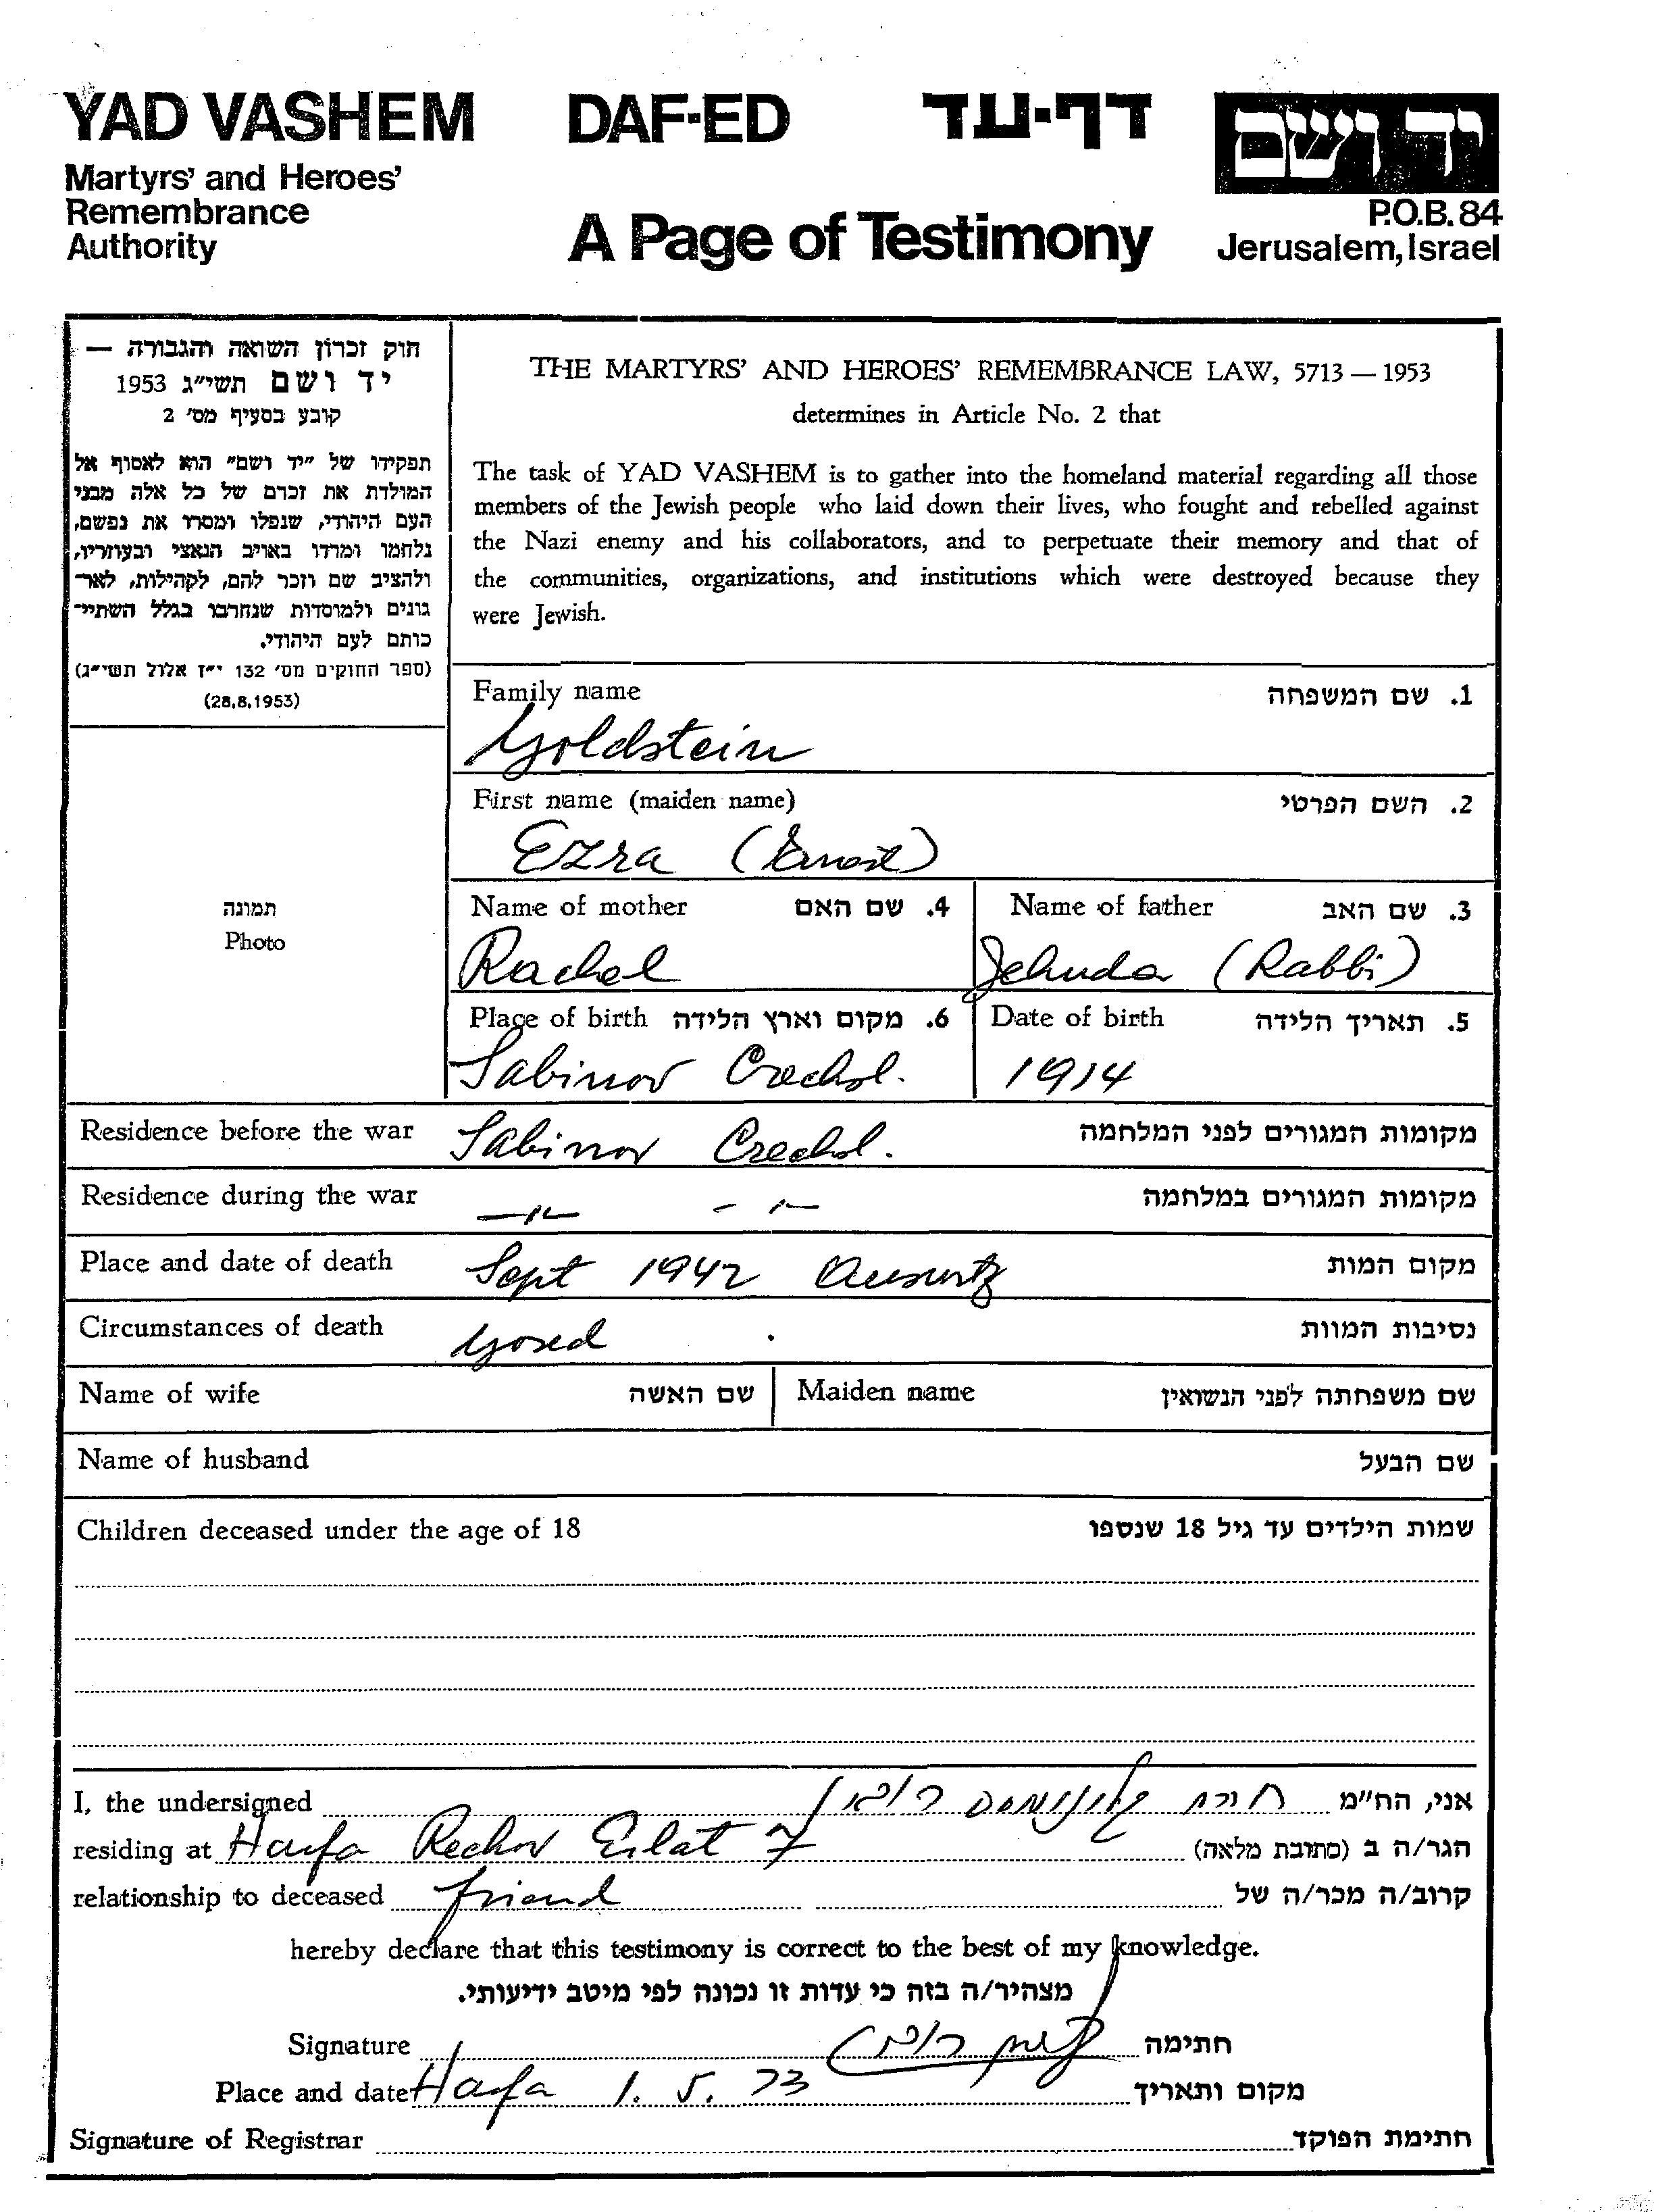 YAD VASHEM DAF-ED דף-עד יד ושם
Martyrs' and Heroes'
Remembrance
Authority
A Page of Testimony
P.O.B. 84
Jerusalem, Israel
חוק זכרון השואה והגבורה —
יד ושם תשי"ג 1953
קובע בסעיף מס' 2
תפקידו של "יד ושם" הוא לאסוף אל
המולדת את זכרם של כל אלה מבני
העם היהודי, שנפלו ומסרו את נפשם,
נלחמו ומרדו באויב הנאצי ובעוזריו,
ולהציב שם וזכר להם, לקהילות, לאר-
גונים ולמוסדות שנחרבו בגלל השתיי-
כותם לעם היהודי.
(ספר החוקים מס' 132 י"ז אלול תשי"ג)
(28.8.1953)
THE MARTYRS' AND HEROES' REMEMBRANCE LAW, 5713 — 1953
determines in Article No. 2 that
The task of YAD VASHEM is to gather into the homeland material regarding all those
members of the Jewish people who laid down their lives, who fought and rebelled against
the Nazi enemy and his collaborators, and to perpetuate their memory and that of
the communities, organizations, and institutions which were destroyed because they
were Jewish.
תמונה
Photo
Family name 1. שם המשפחה
Goldstein
First name (maiden name) 2. השם הפרטי
Ezra (Ernest)
Name of mother 4. שם האם Name of father 3. שם האב
Rachel Jehuda (Rabbi)
Place of birth 6. מקום וארץ הלידה Date of birth 5. תאריך הלידה
Sabinov 1914
Residence before the war Sabinov מקומות המגורים לפני המלחמה
Residence during the war —"— -"- מקומות המגורים במלחמה
Place and date of death Sept 1942 מקום המות
Circumstances of death נסיבות המוות
Name of wife שם האשה Maiden name שם משפחתה לפני הנשואין
Name of husband שם הבעל
Children deceased under the age of 18 שמות הילדים עד גיל 18 שנספו
I, the undersigned רובין אני, הח"מ
residing at Haifa Rechov Eilat 7 הגר/ה ב (כתובת מלאה)
relationship to deceased friend קרוב/ה מכר/ה של
hereby declare that this testimony is correct to the best of my knowledge.
מצהיר/ה בזה כי עדות זו נכונה לפי מיטב ידיעותי.
Signature רובין חתימה
Place and date Haifa 1. 5. 73 מקום ותאריך
Signature of Registrar חתימת הפוקד